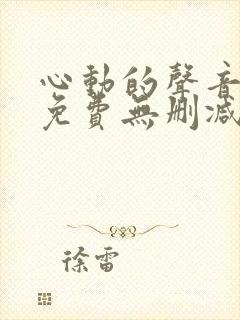 心動的聲音
免費無刪減
徐雷